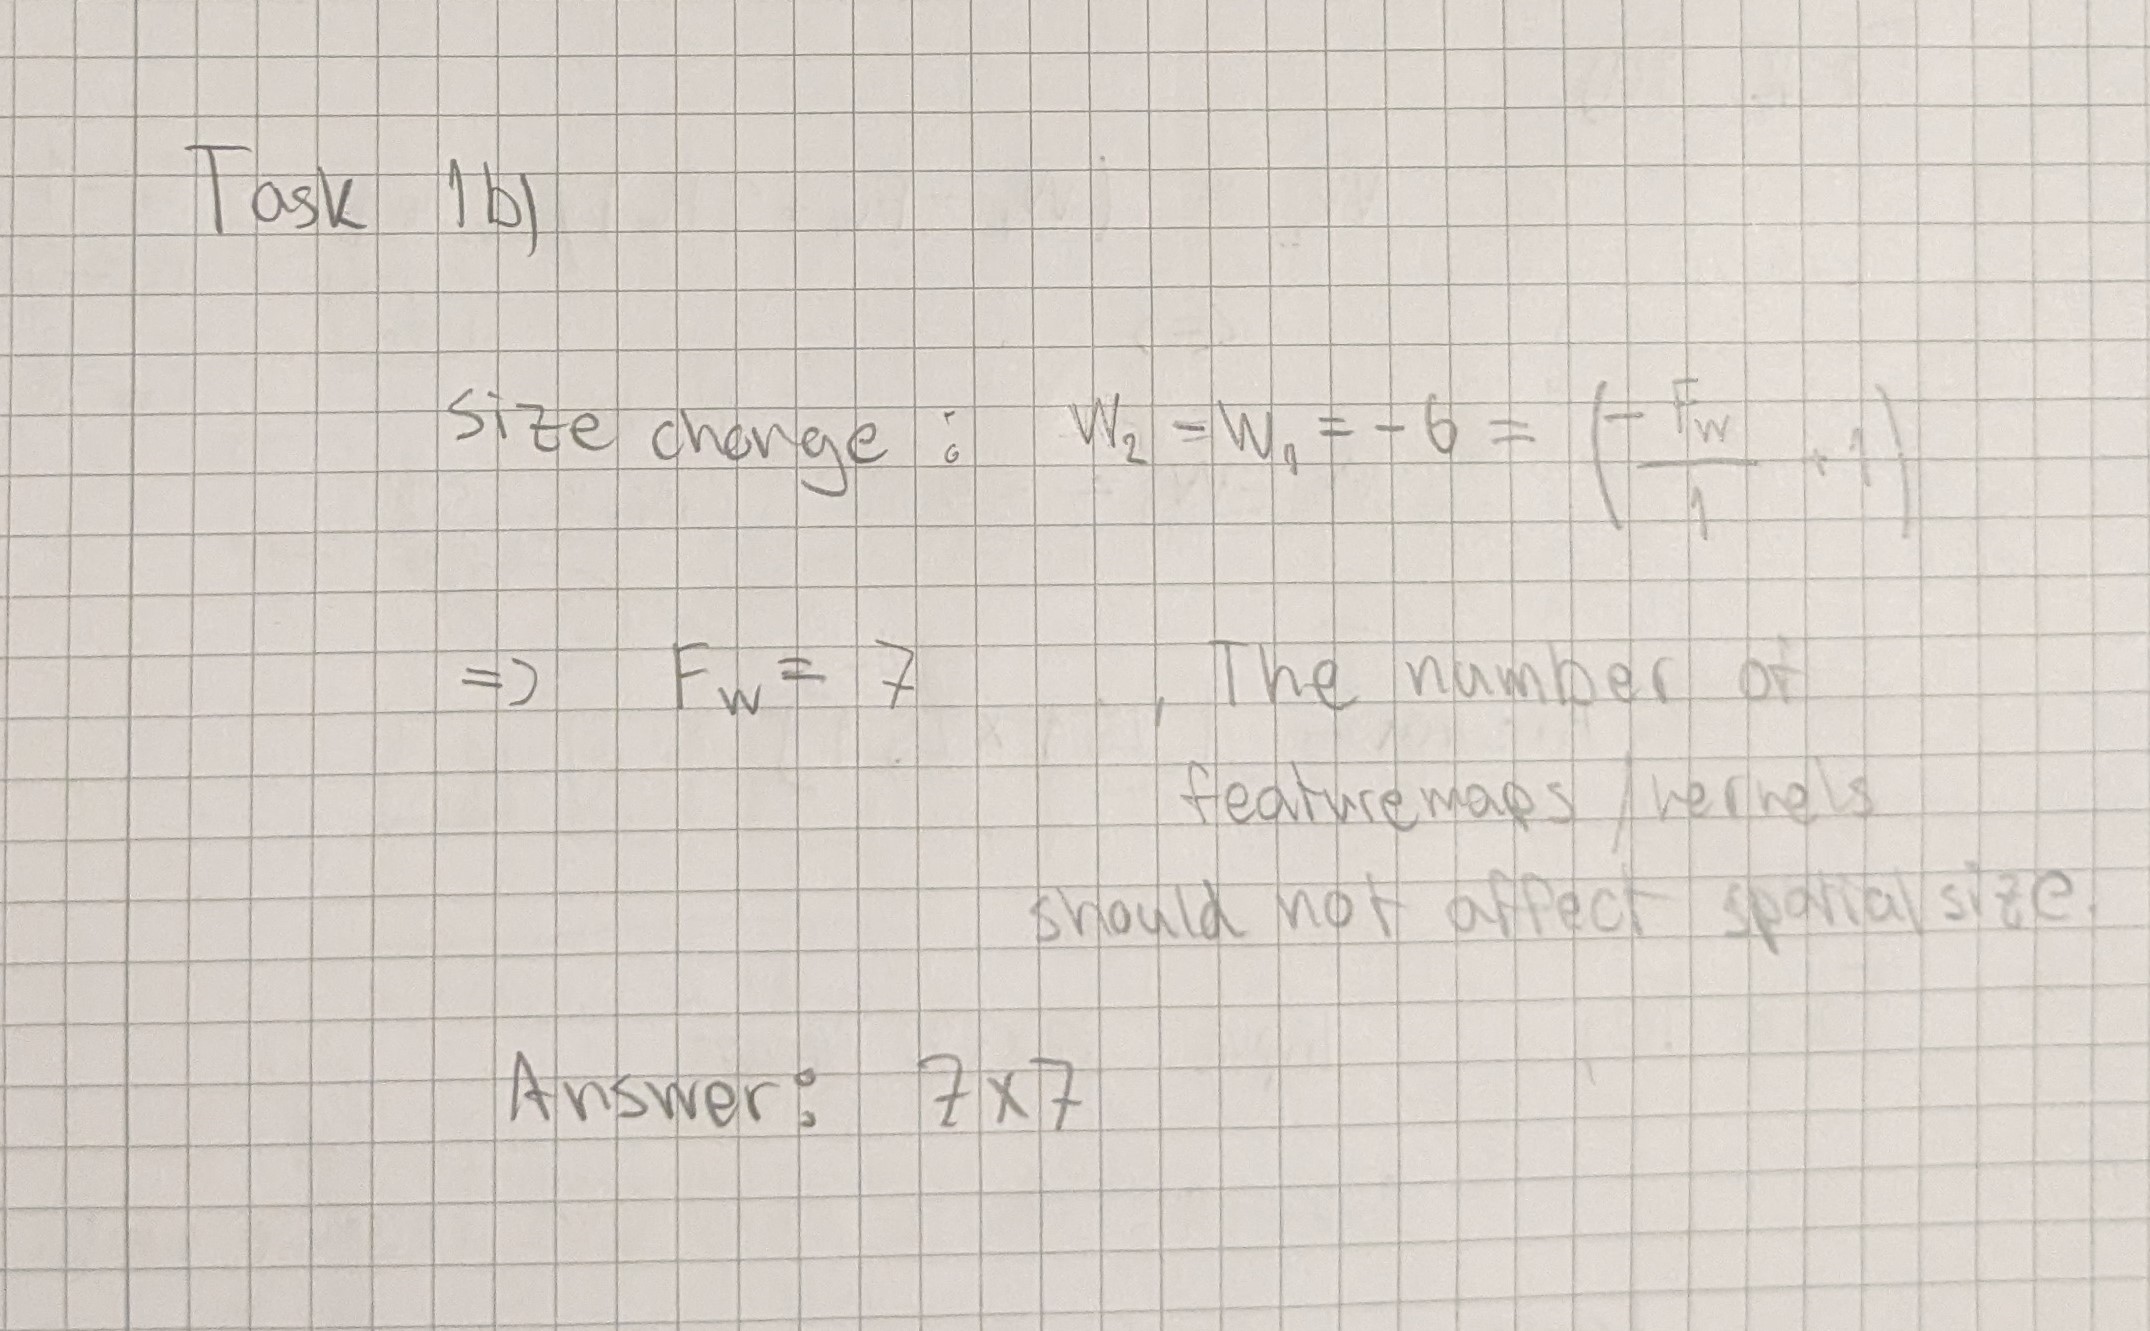 Task 1b)
size change: W₂ = W₁ = -6 = (- F_W / 1 + 1)
=> F_W = 7 , The number of
featuremaps / kernels
should not affect spatial size.
Answer: 7x7